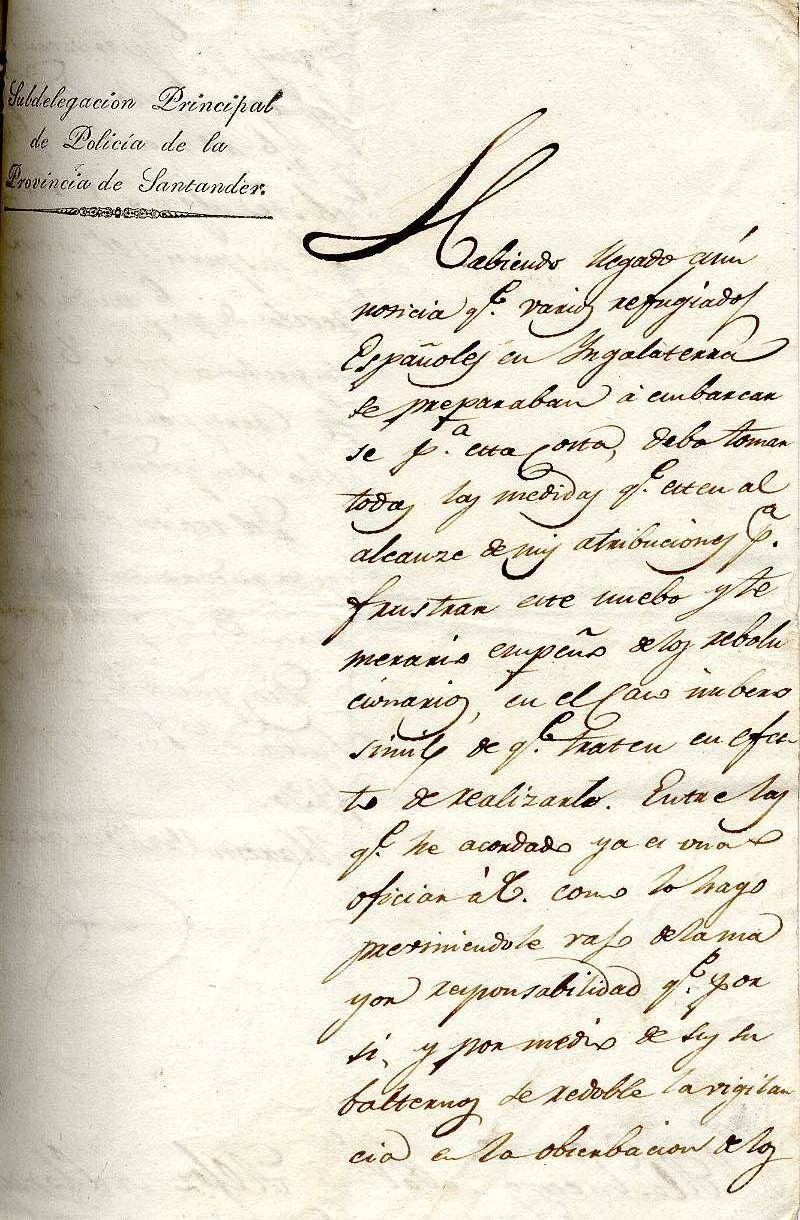 Subdelegacion Principal
de Policía de la
Provincia de Santander.
Habiendo llegado á mi
noticia qe. varios refugiados
Españoles en Ingalaterra
se preparaban á embarcar
se pa. esta Costa, debo tomar
todas las medidas qe. esten al
alcanze de mis atribuciones pa.
frustrar este nuebo y te
merario empeño de los rebolu
cionarios, en el Caso inbero
simil de qe. traten en efec-
to de realizarlo. Entre las
qe. he acordado ya es una
oficiar á V. como lo hago
previniendole vajo de la ma
yor responsabilidad qe. por
si, y por medio de sus su
balternos se redoble la vigilan
cia en la obserbacion de los